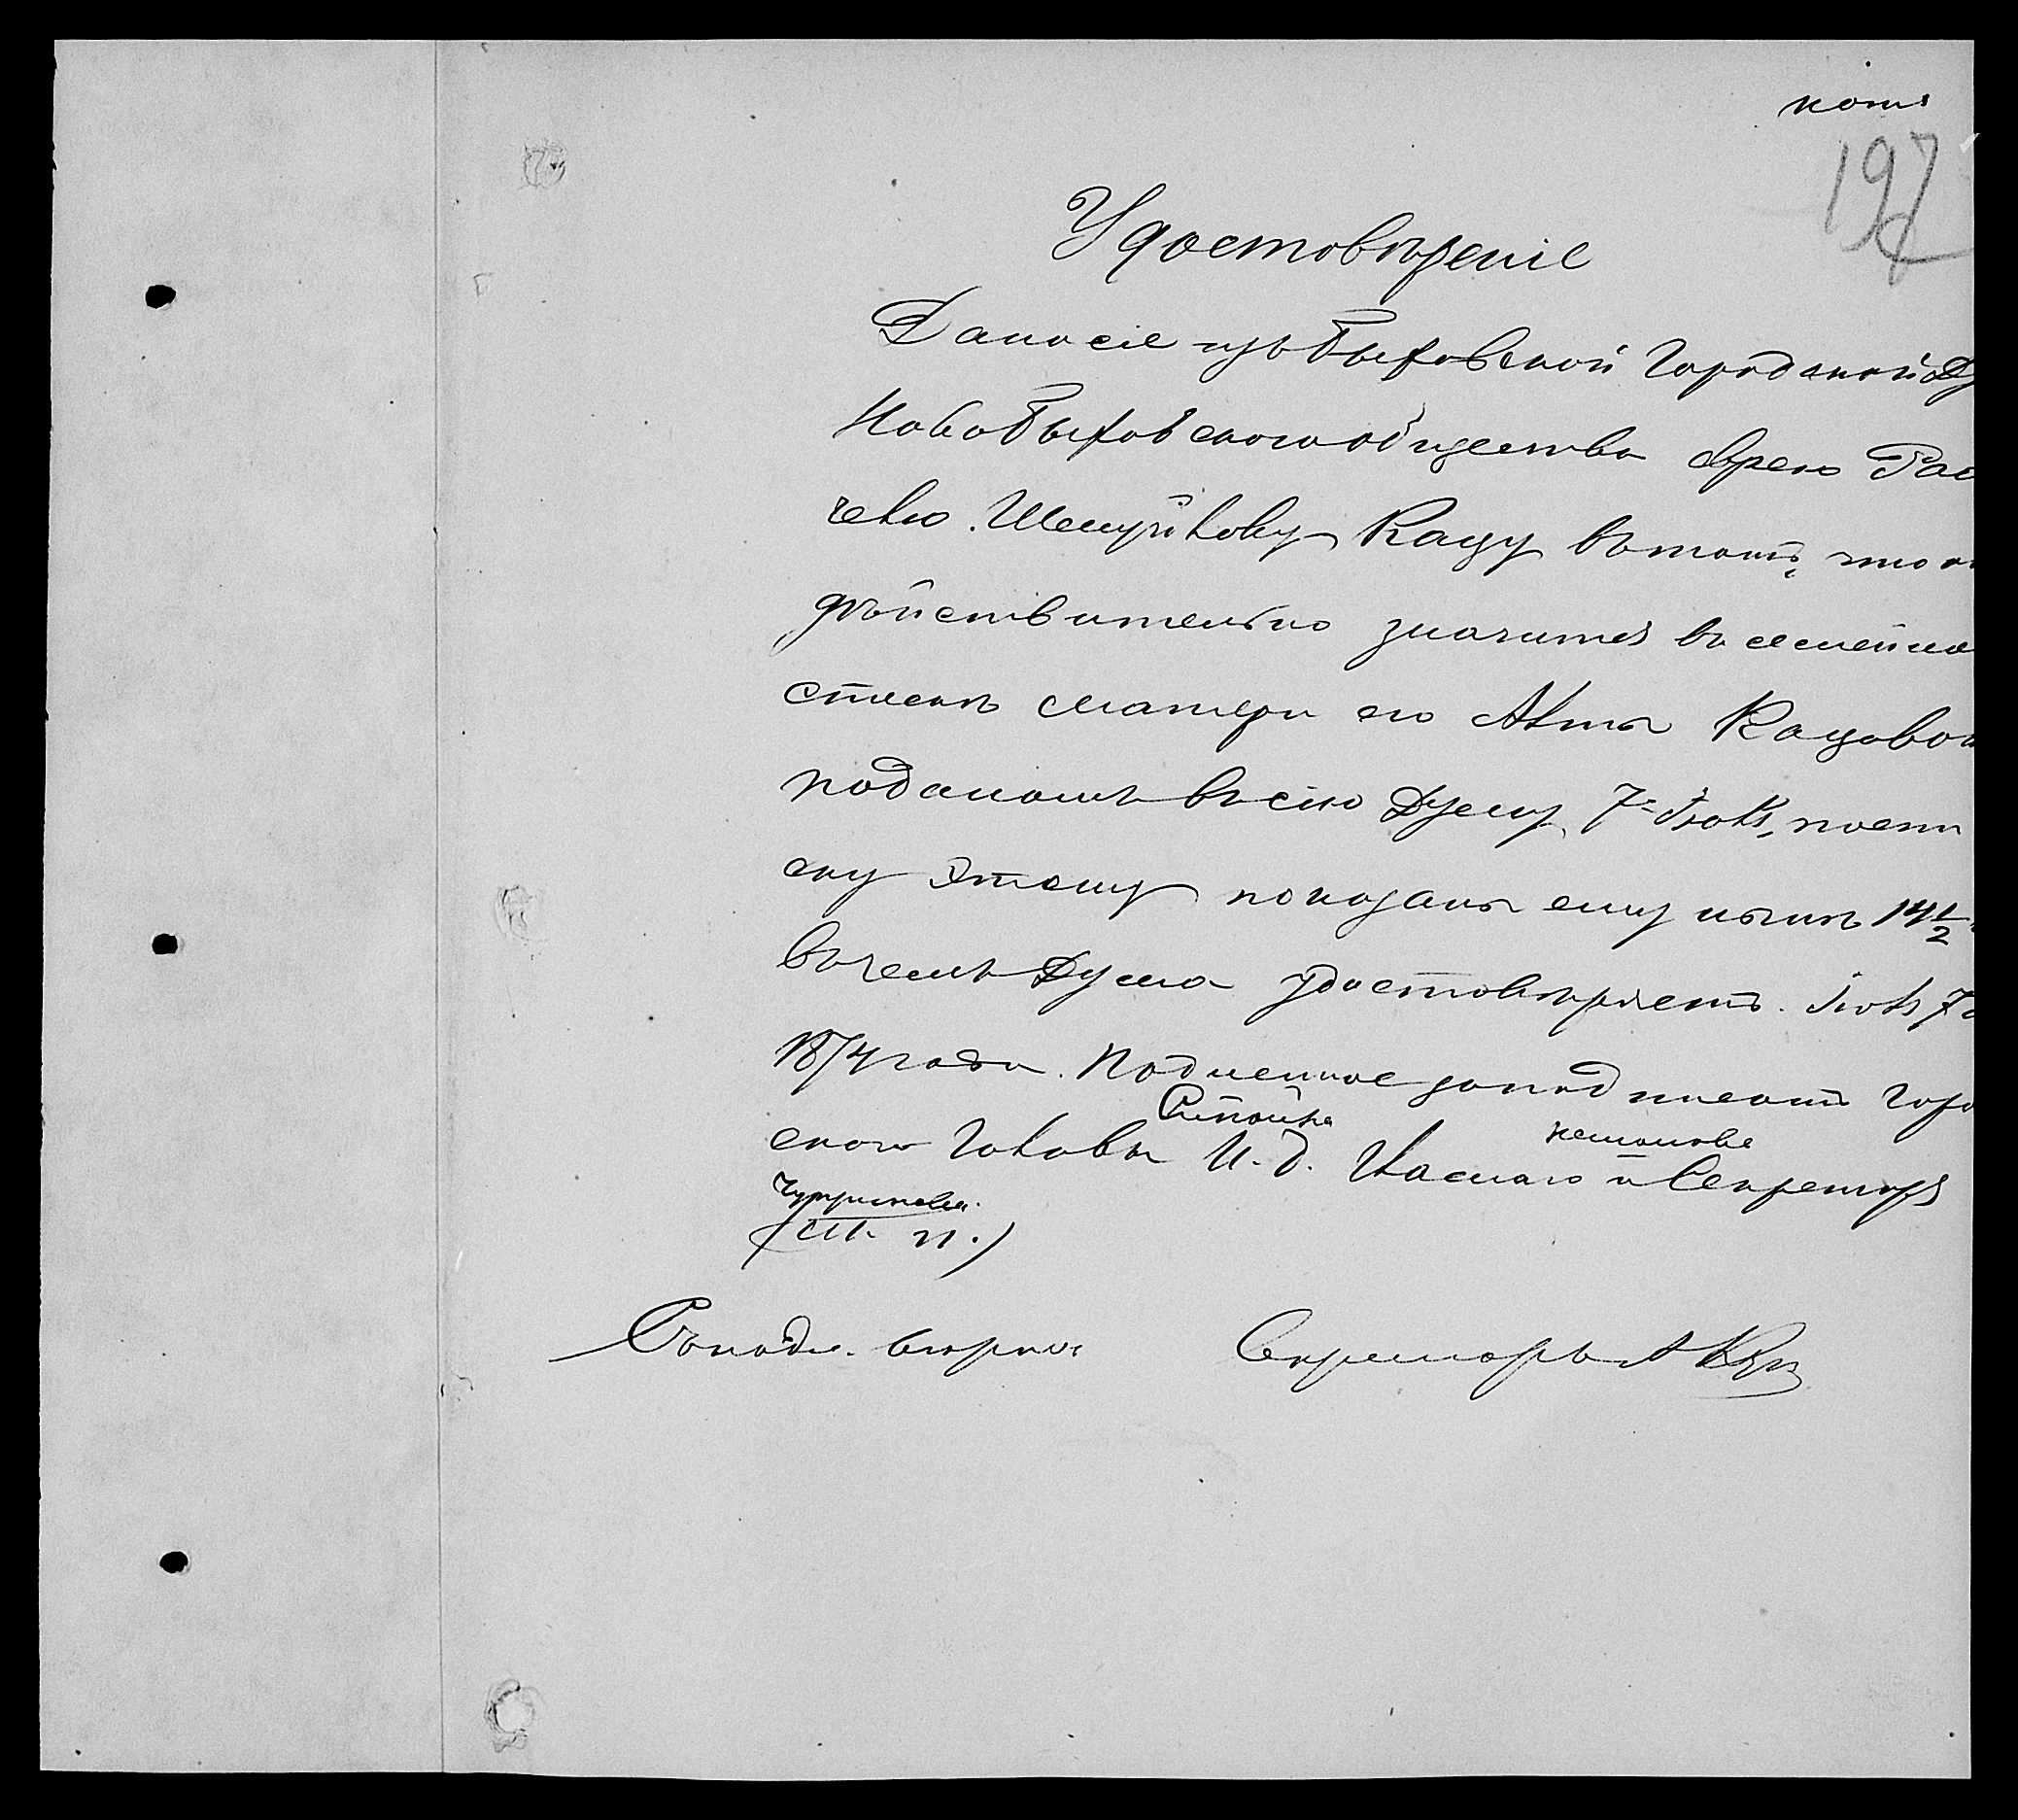 копія
197
Удостовѣреніе
Дано сіе изъ Быховской Городской Ду
Новобыховского общества еврею
Шмуйлову Кацу въ томъ, что он
дѣйствительно значится въ семейно
спискѣ матери его Кацовой
поданномъ въ сію Думу 7 Іюля, по спи
ску этому показано ему нынѣ 14½
въ чемъ Дума удостовѣряетъ. Іюля 7
1874 года. Подлинное за подписомъ Горо
ского Головы И. д. Гласнаго и Секретаря
(М. П.)
Съ подл. вѣрно: Секретарь